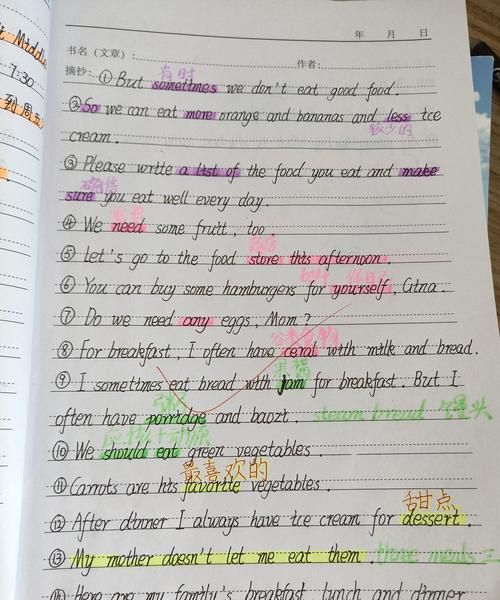 t Middle
7:30
到周五
年 月 日
书名（文章）： 作者：
摘抄： 有时
①But sometimes we don't eat good food.
②So we can eat more orange and bananas and less ice
较少的
cream.
③Please write a list of the food you eat and make
确信
sure you eat well every day.
需要
④We need some fruit, too.
商店
⑤Let's go to the food store this afternoon.
buy 你自己
⑥You can buy some hamburgers for yourself, Gina.
⑦Do we need any eggs, Mom?
谷类食物
⑧For breakfast, I often have ceral with milk and bread.
果酱
⑨I sometimes eat bread with jam for breakfast. But I
often have porridge and baozi. steam bread 馒头
应该+动原
⑩We should eat green vegetables.
最喜欢的
⑪Carrots are his favorite vegetables.
甜点
⑫After dinner I always have ice cream for dessert.
⑬My mother doesn't let me eat them. three meals 三
Here are my family's breakfast, lunch and dinner